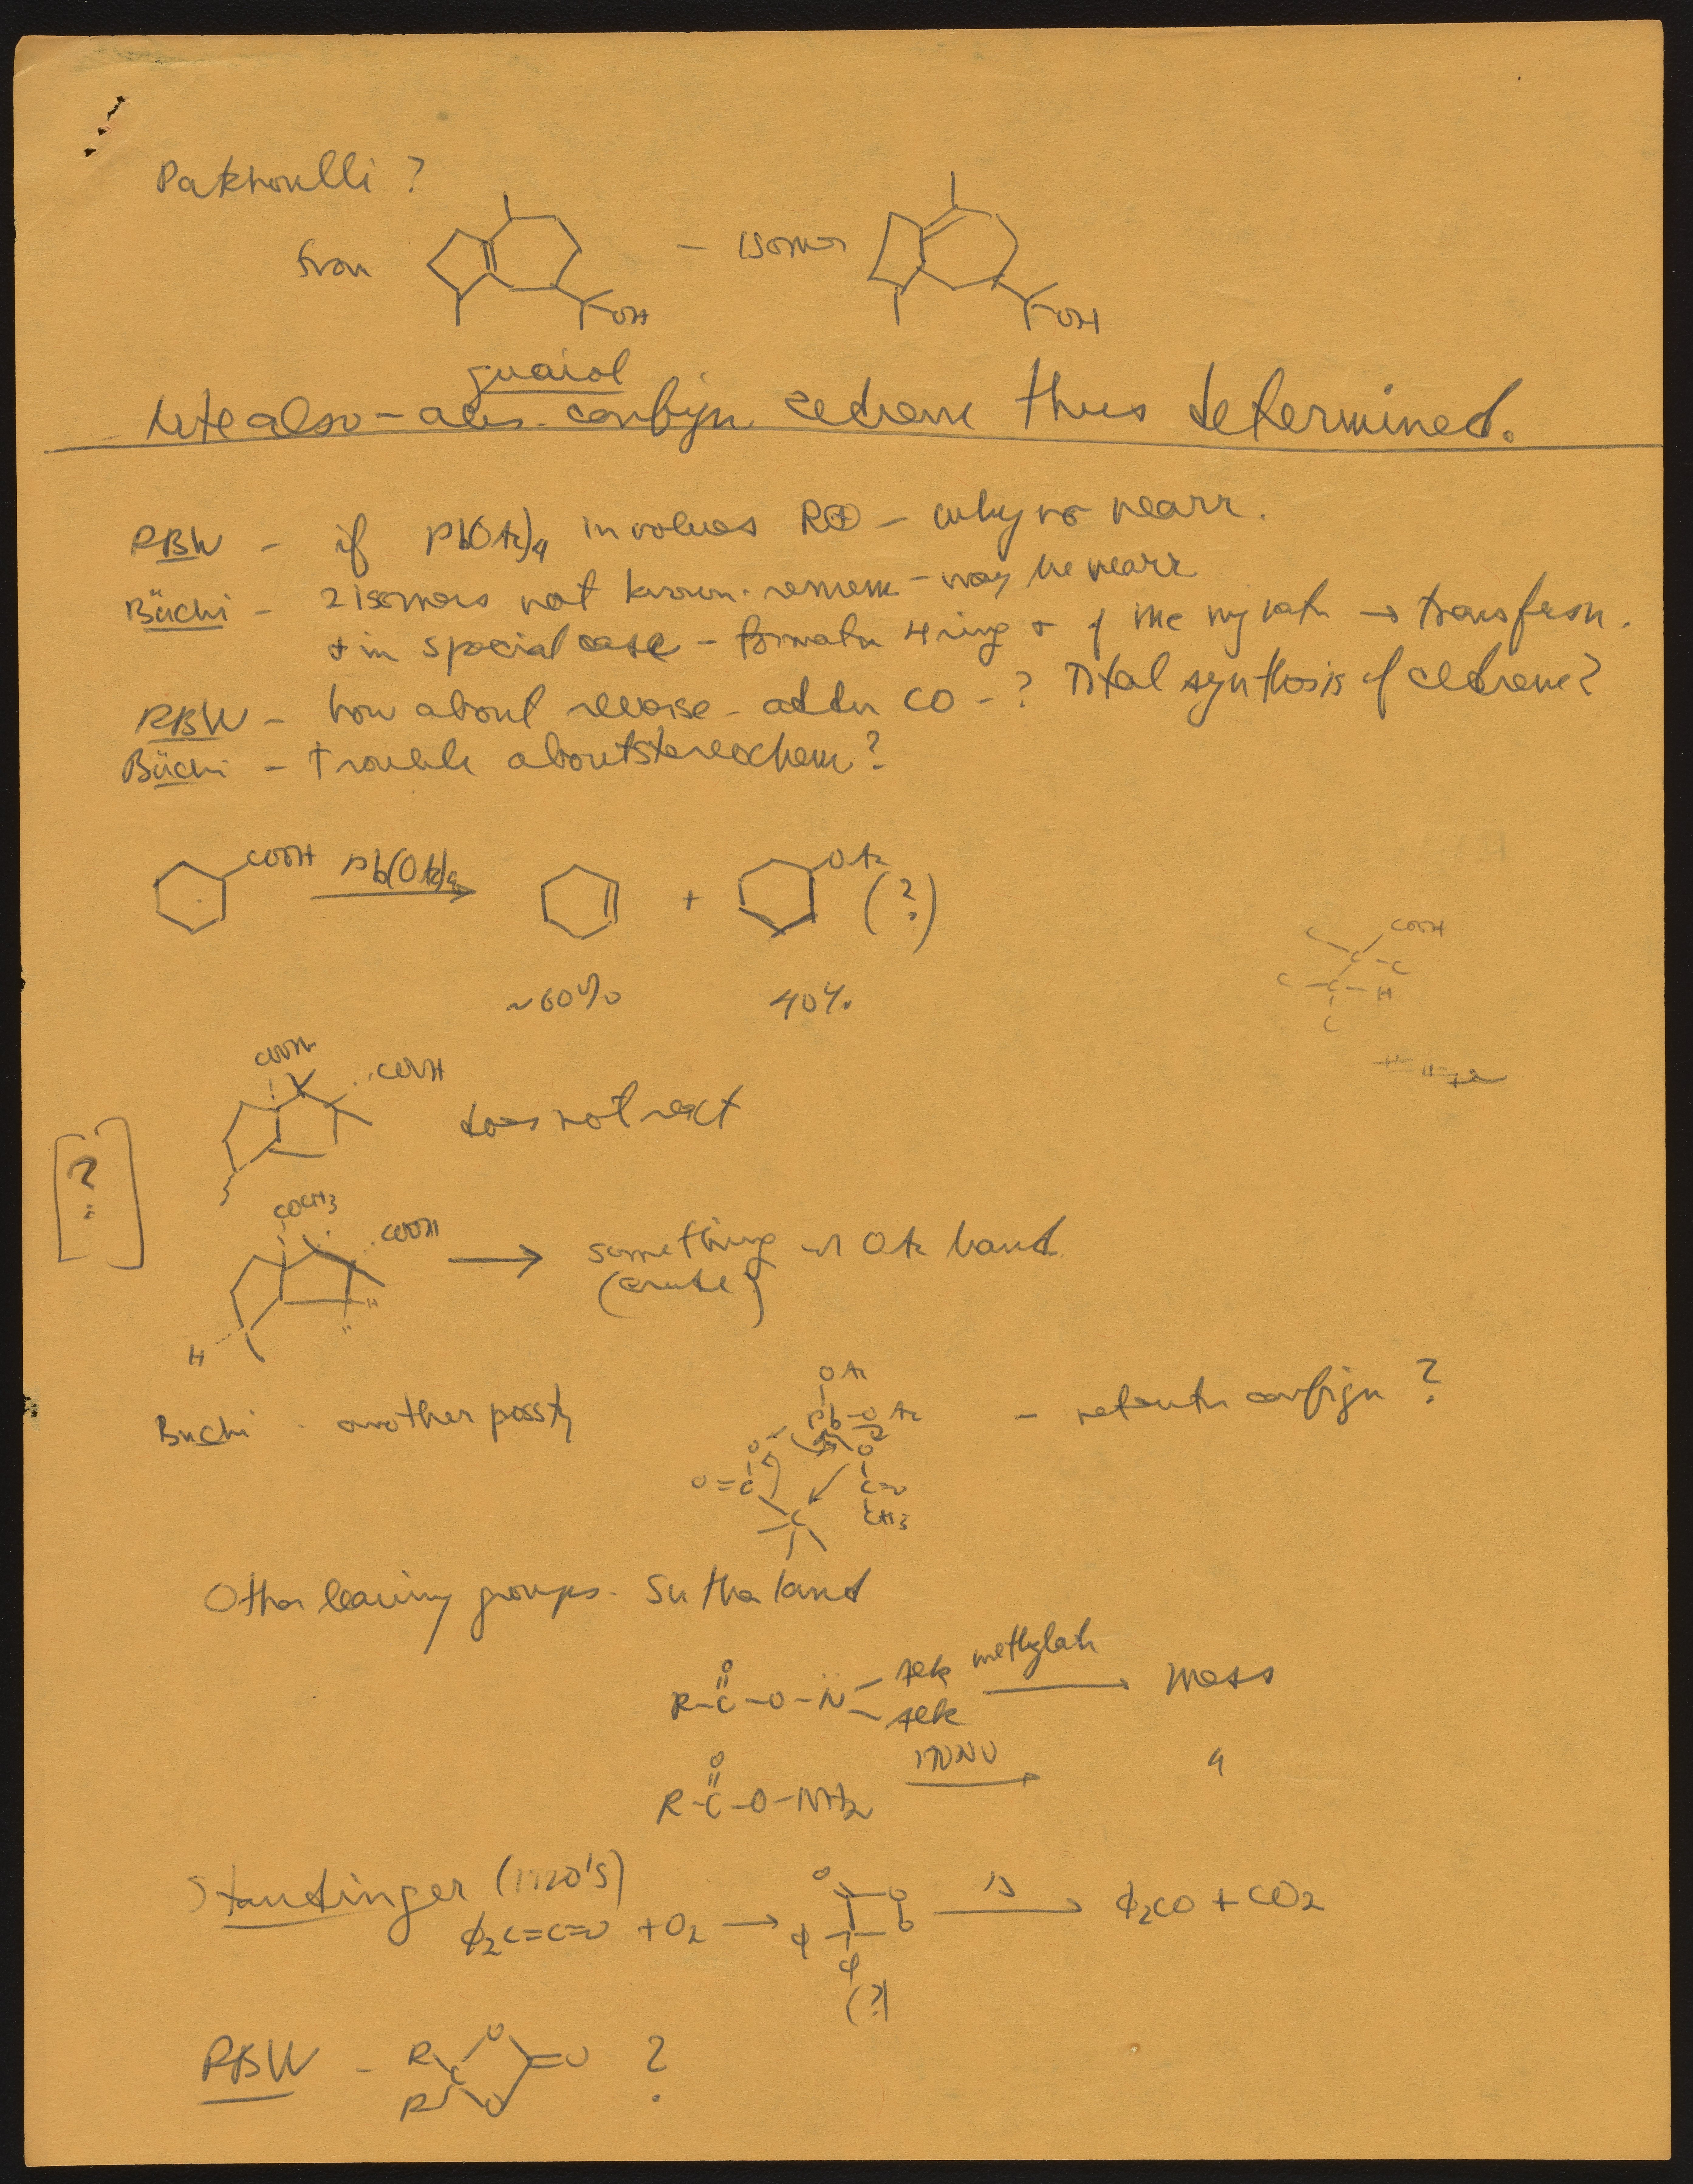 Patchoulli ?
from
– isomer
OH
OH
guaiol
Note also – abs. config. cedrene thus determined.
RBW – if Pb(OAc)4 involves R⊕ – why no rearr.
Büchi – 2 isomers not known. – may be rearr
+ in special case – formatn 4 ring + of Me → transfsn.
RBW – how about reverse – addn CO – ? Total synthesis of cedrene?
Büchi – trouble about stereochem?
COOH
Pb(OAc)4
+
OAc
(?)
~60%
40%
COOH
C
C – C
C – C – H
C
COOH
COOH
does not react
[?]
COCH3
COOH
H
H
→ something w OAc band
(crude)
Büchi - another possty
OAc
Pb–OAc
O
O
O=C
C=O
CH3
C
– retentn config ?
Other leaving groups - Sutherland
R–C–O–N
O
Alk
Alk
methylatn
mess
R–C–O–NH2
O
HONO
"
Staudinger (1920's)
ϕ2C=C=O + O2 →
O
O
O
ϕ
ϕ
(?)
Δ
ϕ2CO + CO2
RBW –
R
R
C
O
O
=O
?